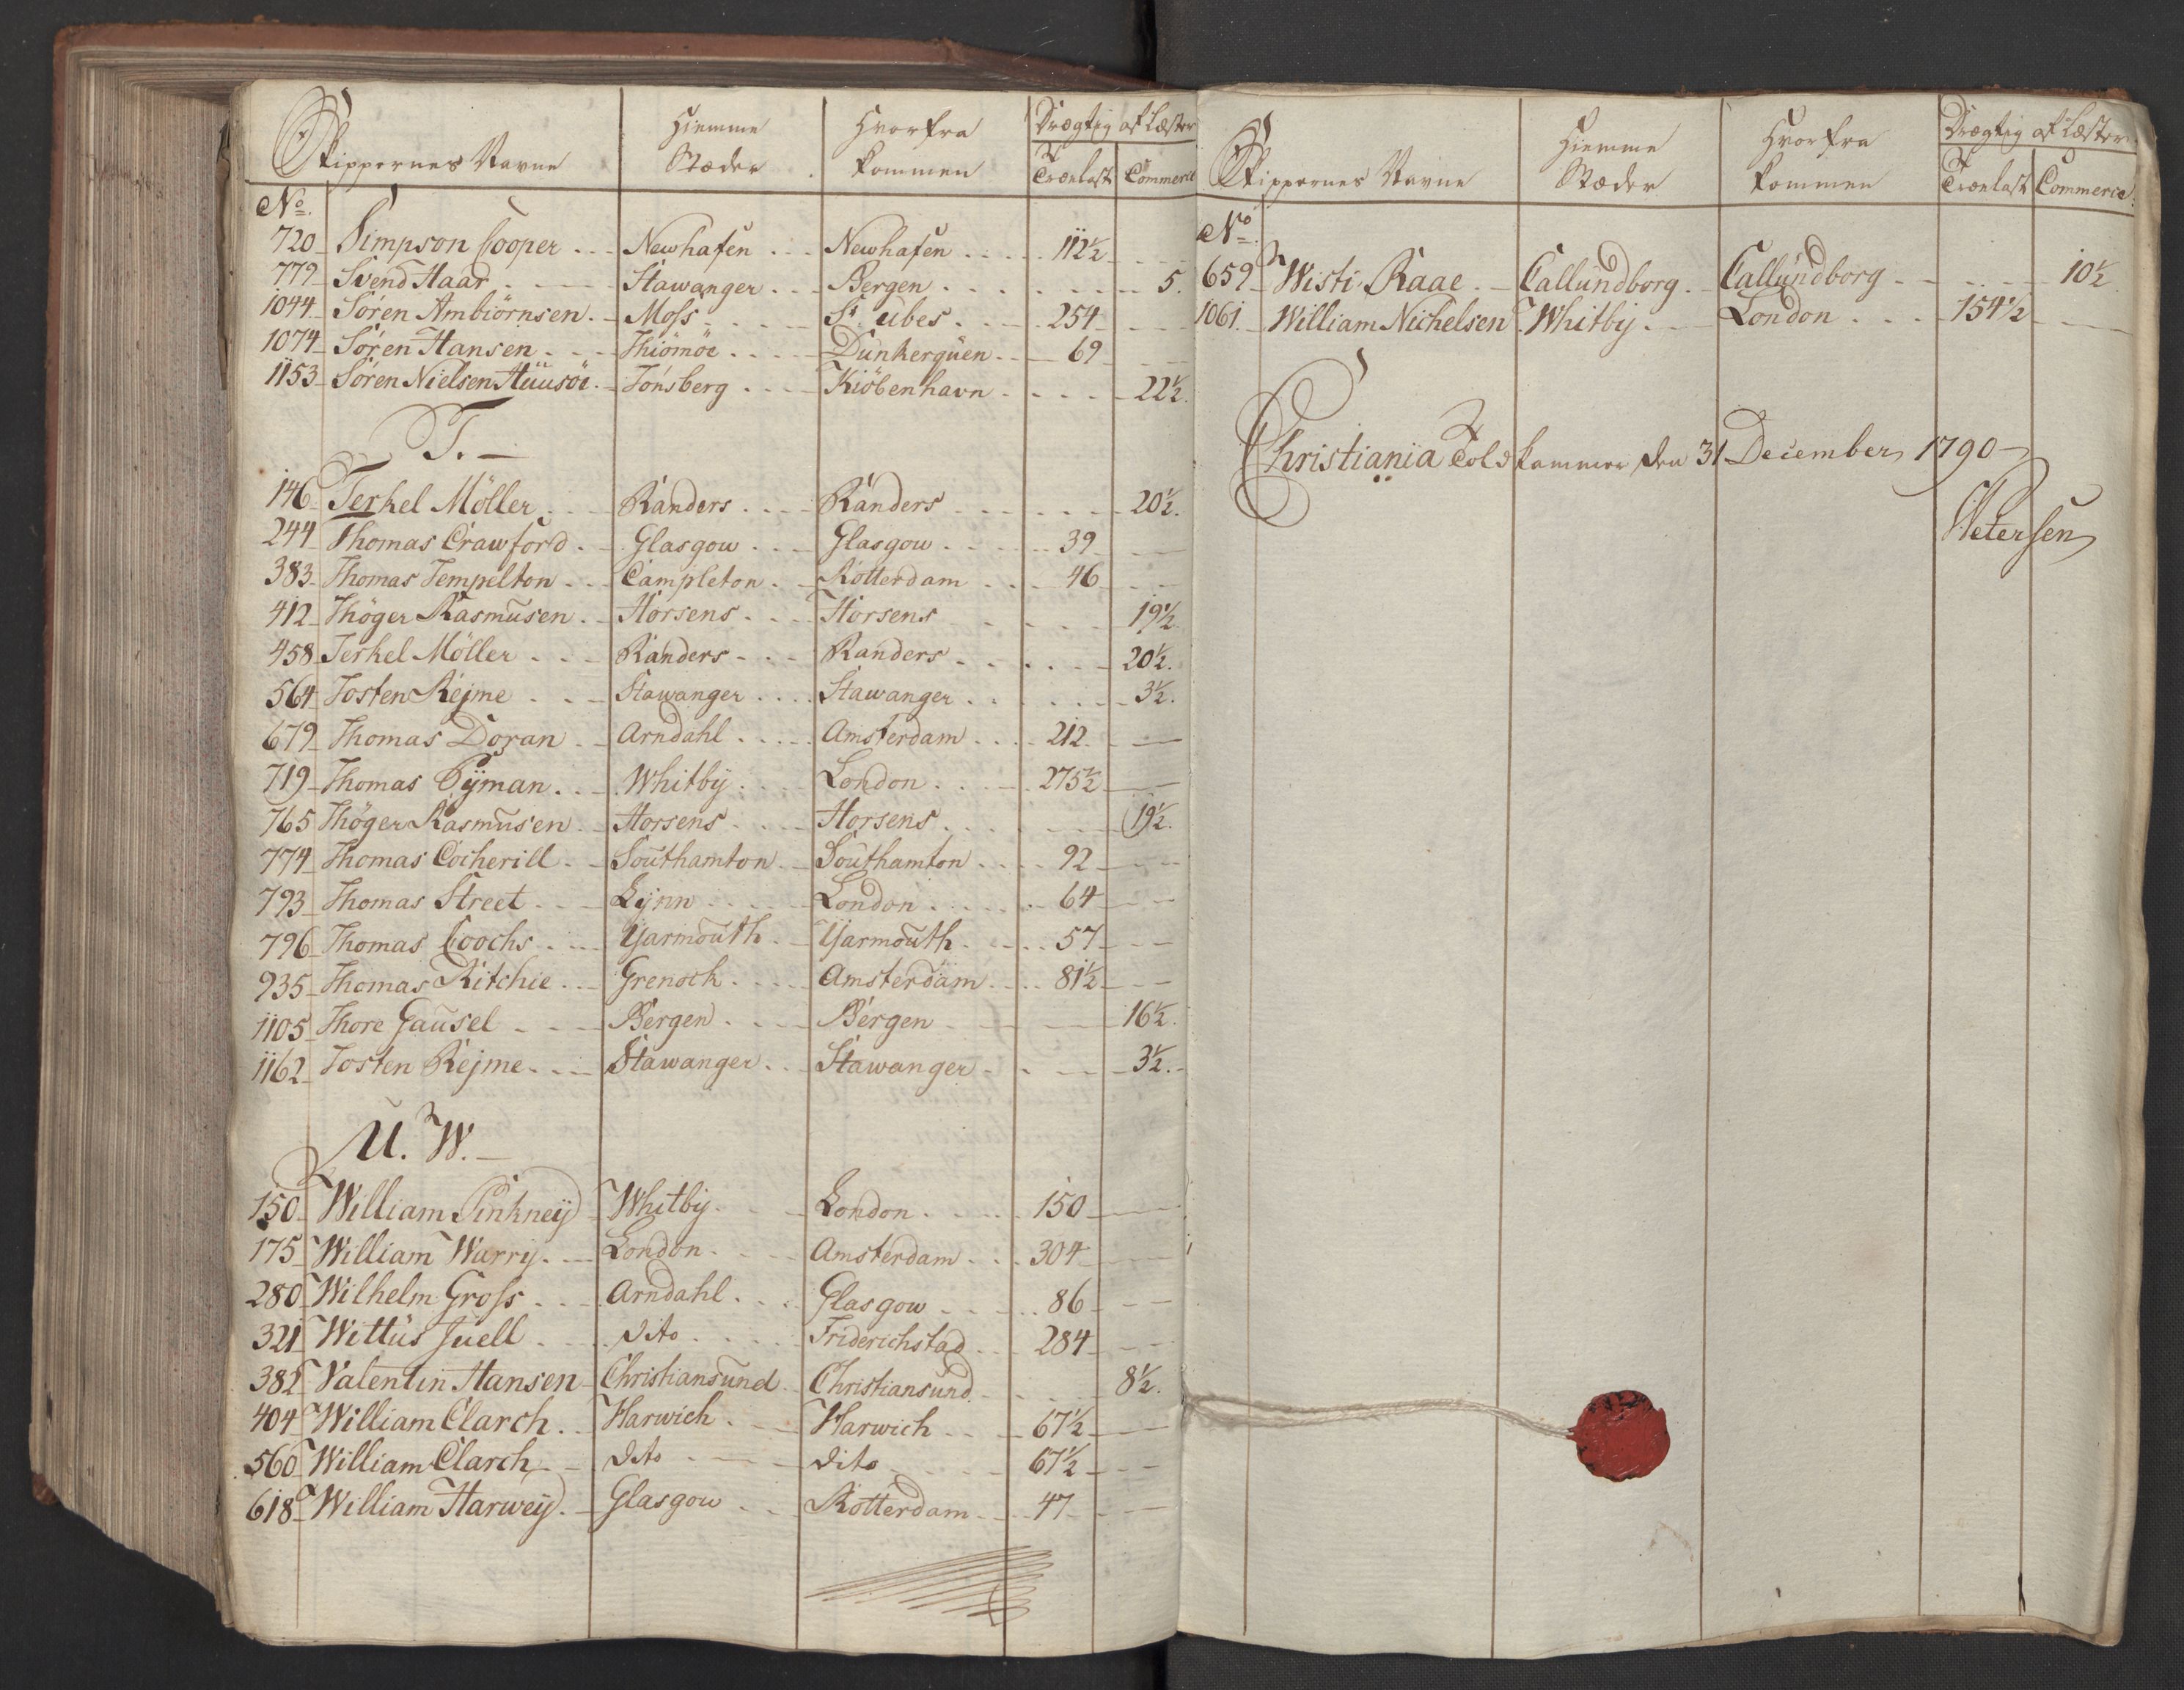 Skippernes Navne | Hiemme Stæder | Hvorfra kommen | Drægtig af Læster
Trælast | Commerce
No.
720 Simpson Cooper Newhafen Newhafen 112½
779 Svend Haar Stawanger Bergen 5.
1044 Sören Ambiörnsen Moss St. ubes 254
1074 Sören Hansen Thiömöe Dünkerqüen 69
1153 Sören Nielsen Hüüsöe Tonsberg Kiöbenhavn 22½.
T.
146 Terkel Möller Randers Randers 20½.
244 Thomas Crawford Glasgow Glasgow 39
383 Thomas Tempelton Campleton Rotterdam 46
412 Thöger Rasmusen Horsens Horsens 19½
458 Terkel Möller Randers Randers 20½.
564 Tosten Rejme Stawanger Stawanger 3½.
679 Thomas Doran Arndahl Amsterdam 212
719 Thomas Pÿman Whitbÿ London 275½
765 Thöger Rasmusen Horsens Horsens 19½.
774 Thomas Cocherill Southamton Southamton 92
793 Thomas Street Lÿnn London 64
796 Thomas Coochs Yarmouth Yarmouth 57
935 Thomas Ritchie Grenock Amsterdam 81½
1105 Thore Gausel Bergen Bergen 16½.
1162 Tosten Rejme Stawanger Stawanger 3½.
U. W.
150 William Pinkneÿ Whitbÿ London 150
175 William Warrÿ London Amsterdam 304
280 Wilhelm Gross Arndahl Glasgow 86
321 Wittus Juell dito Friderichstad 284
382 Valentin Hansen Christiansund Christiansund 8½.
404 William Clarch Harwich Harwich 67½
560 William Clarch dito dito 67½
618 William Harweÿ Glasgow Rotterdam 47
Skippernes Navne | Hiemme Stæder | Hvorfra kommen | Drægtig af Læster
Trælast | Commerce
No.
659 Wisti Raae Callundborg Callundborg 10½
1061 William Nichelsen Whitbÿ London 154½
Christiania Toldkammer den 31 December 1790
Petersen